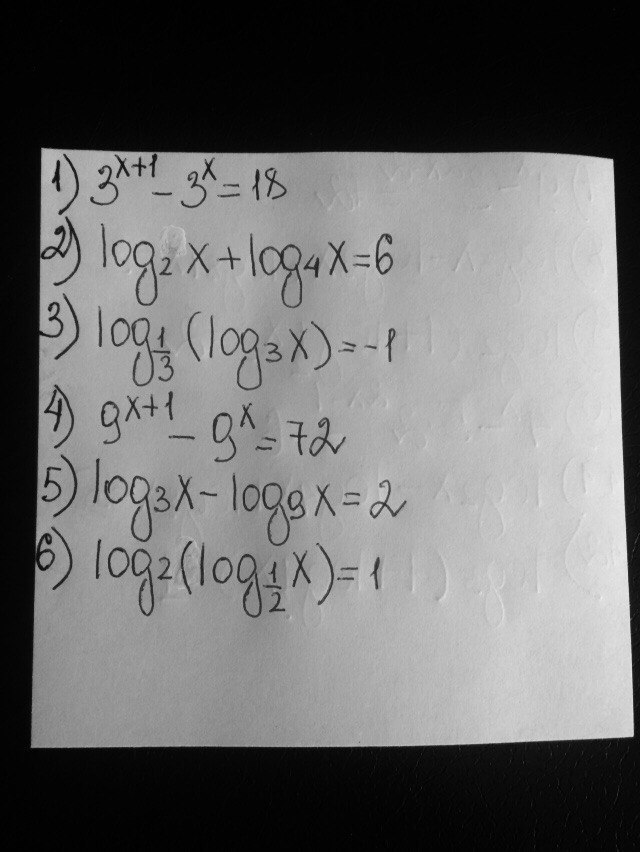 1) 3^{x+1} - 3^x = 18
2) log_2 x + log_4 x = 6
3) log_{1/3} (log_3 x) = -1
4) 9^{x+1} - 9^x = 72
5) log_3 x - log_9 x = 2
6) log_2 (log_{1/2} x) = 1